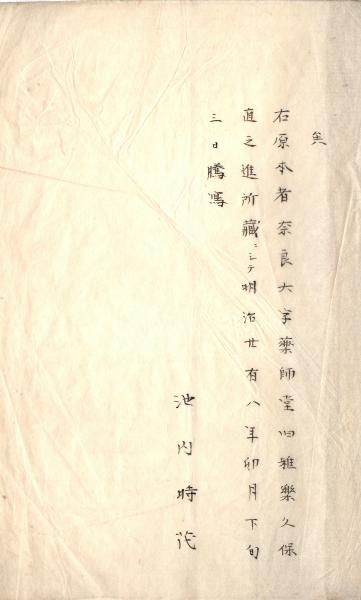 矣
右原本者奈良大字藥師堂旧雅樂久保
直之進所藏ニシテ明治廿有八年卯月下旬
三日騰寫
池内時茂